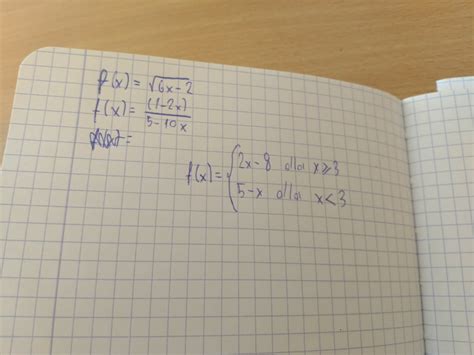 f(x) = √6x-2
f(x) = (1-2x)/5-10x
f(x) = { 2x-8 dla x≥3
5-x dla x<3